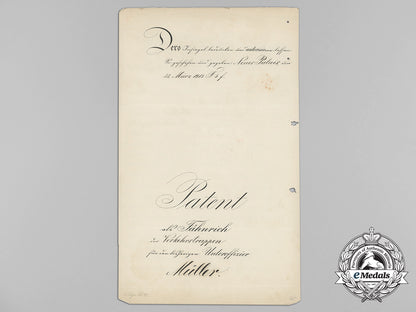 Dero Insiegel bedrucken und
So geschehen und gegeben Neues Palais den
22. März 1913
Patent
als Fähnrich
der Verkehrstruppen
für den bisherigen Unteroffizier
Müller.
eMedals